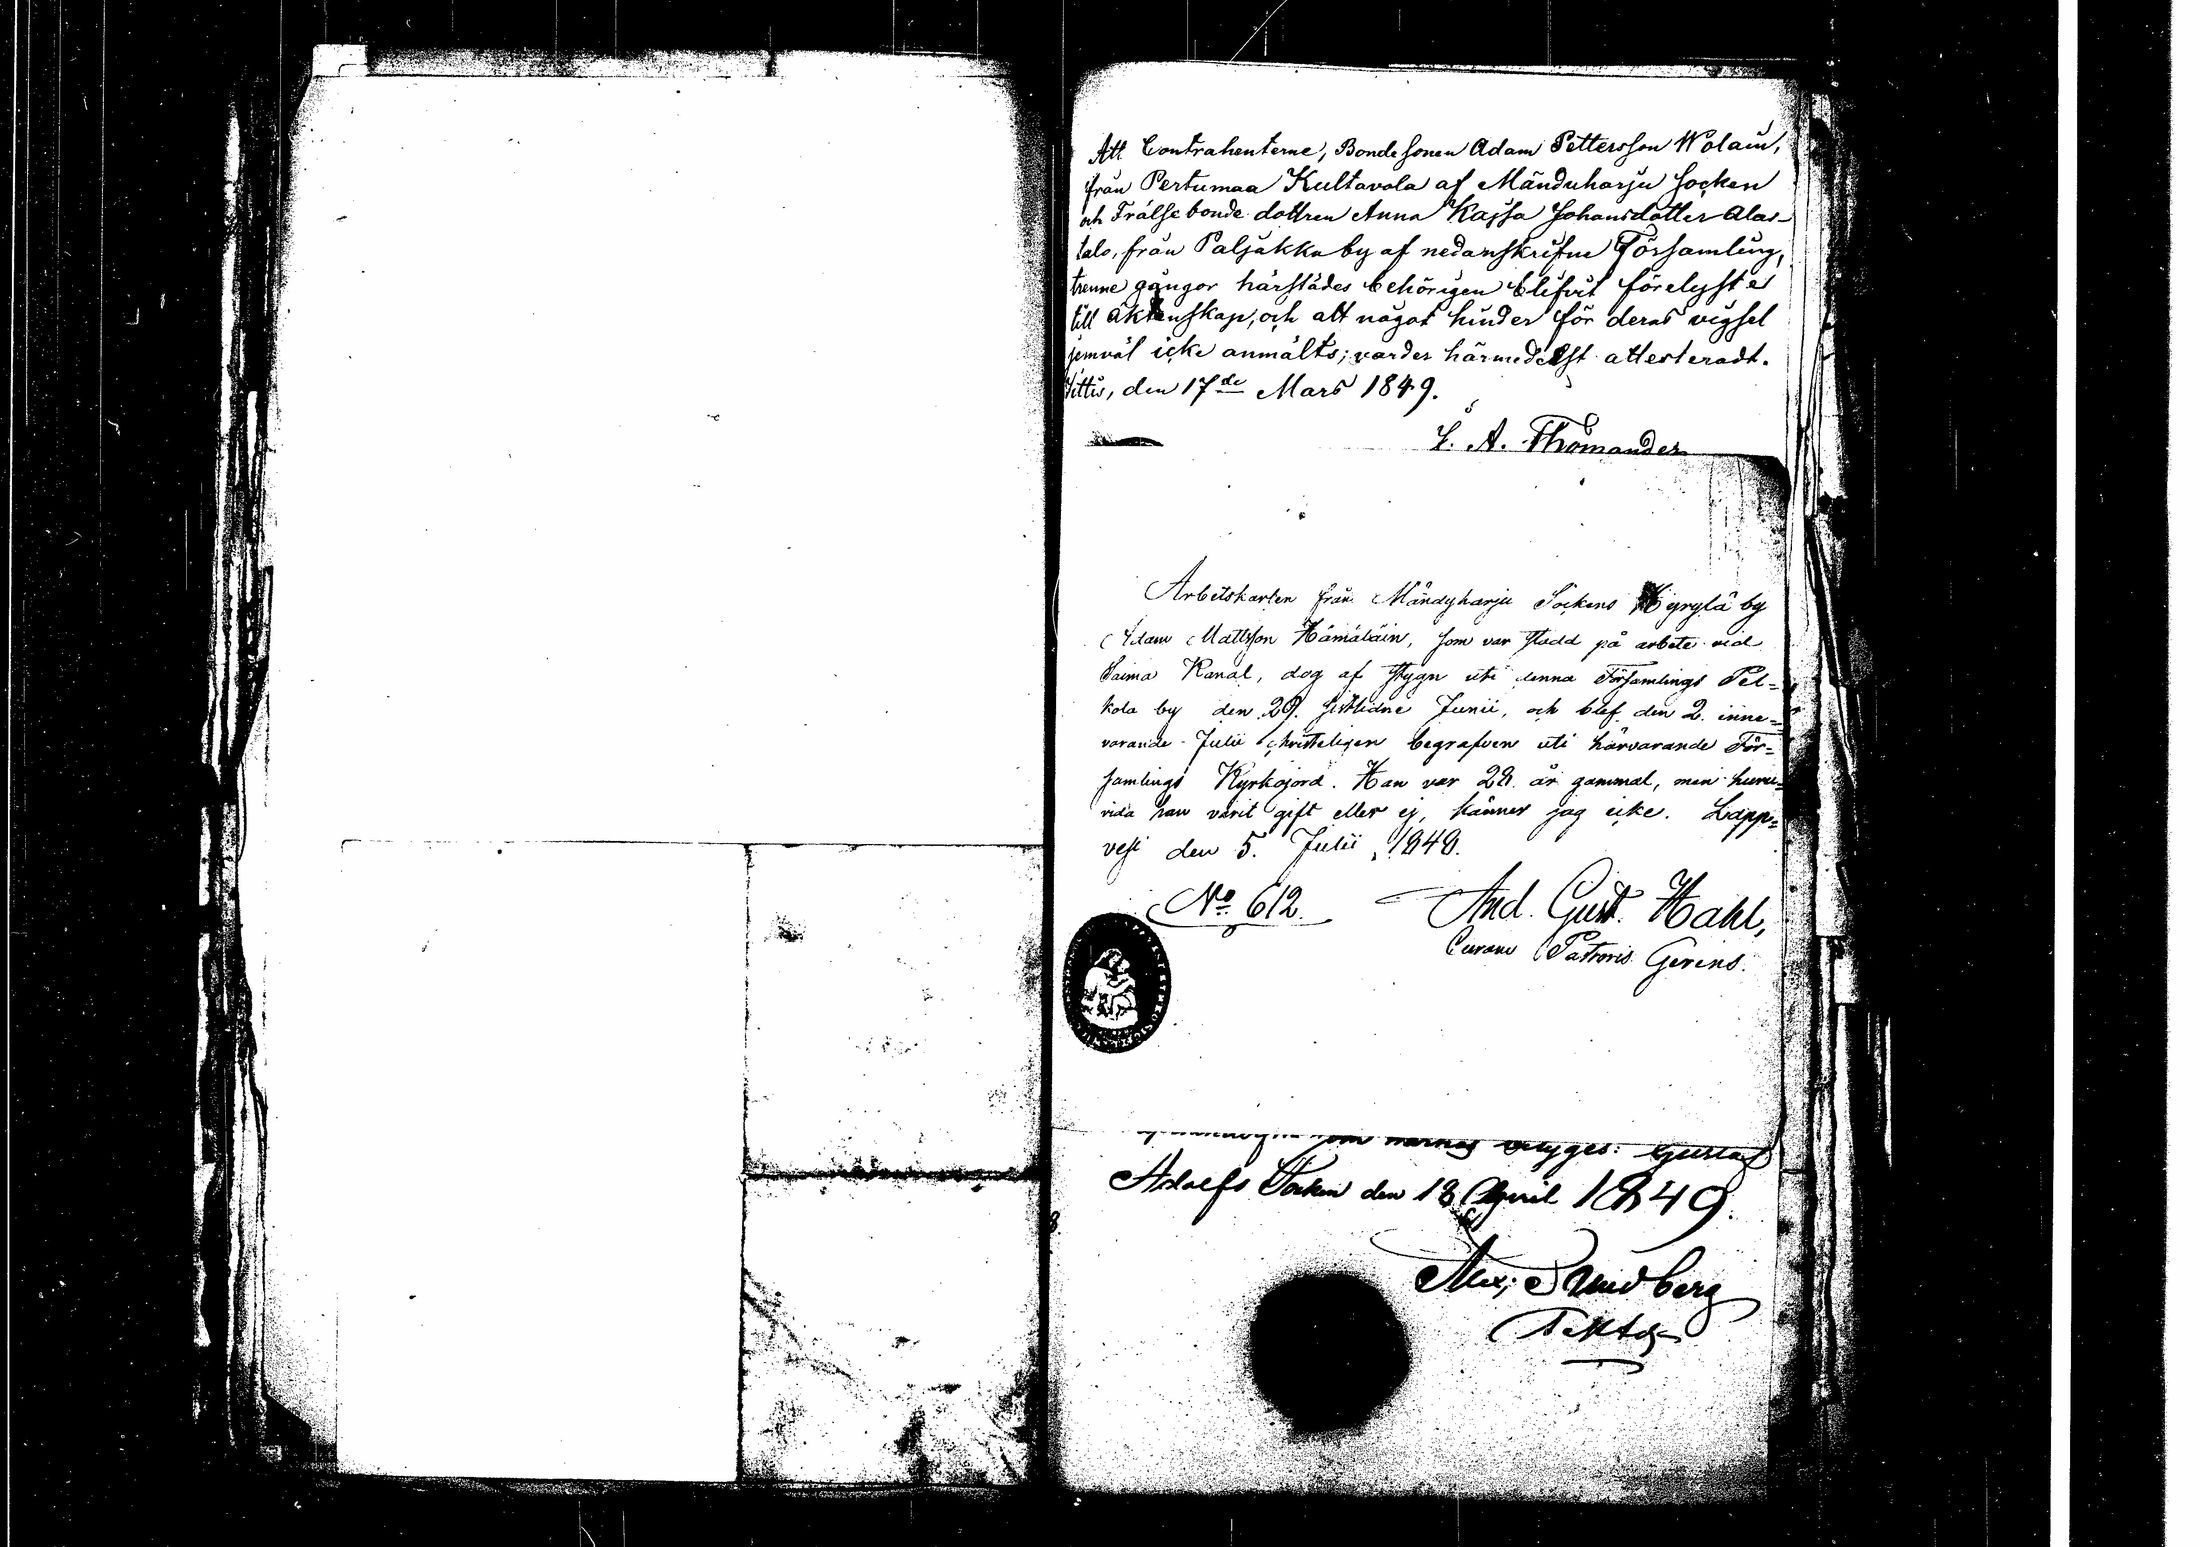 Att Contrahenterne, Bondesonen Adam Pettersson Wolain,
från Pertumaa Kultavola af Mänduharju socken
och Frälsebonde dottren Anna Kajsa Johansdotter Alas-
talo, från Paljakka by af nedanskrifne Församling,
trenne gångor härstädes behörigen blifvit förelyste
till äktenskap, och att något hinder för deras vigsel
jemväl icke anmälts; varder härmedelst attesteradt.
Jittis, den 17de Mars 1849.
L. A. Thomander
Arbetskarlen från Mändyharju Sockens Kyrylä by
Adam Mattsson Hämäläin, som var stadd på arbete vid
Saima Kanal, dog af stygn uti denna Församlings Pel=
kola by den 29. sistlidne Junii, och blef den 2. inne=
varande Julii christeligen begrafven uti härvarande För=
samlings Kyrkojord. Han var 28. år gammal, men huru=
vida han varit gift eller ej, känner jag icke. Lapp=
vesi den 5. Julii 1848.
No 612. And. Gust. Hahl,
Curam Pastoris Gerens.
som warnes betyges: Gustaf
Adolfs Socken den 18 April 1849.
Alex; Sundberg